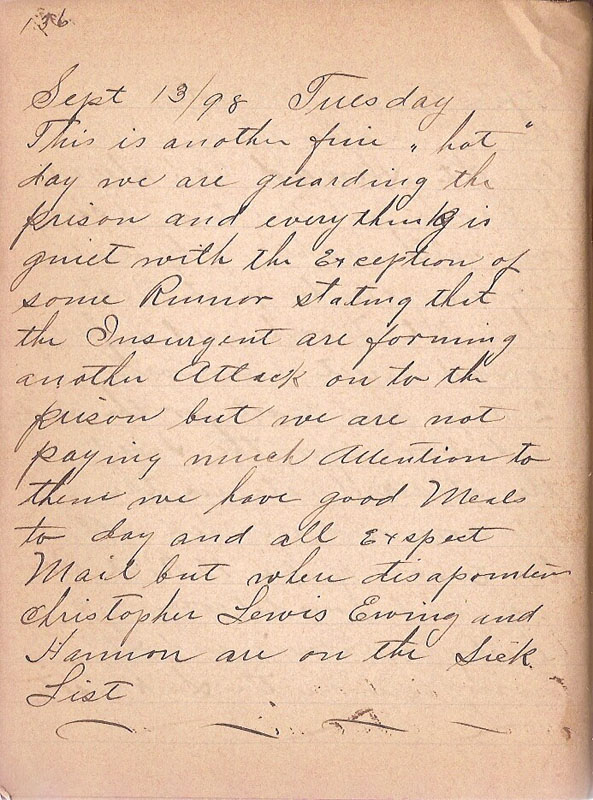 136
Sept 13/98 Tuesday
This is another fine „ hot "
day we are guarding the
prison and everything is
quiet with the Exception of
some Rumor stating that
the Insurgent are forming
another Attack on to the
prison but we are not
paying much Attention to
them we have good Meals
to day and all Exspect
Mail but when disapointen
Christopher Lewis Ewing and
Hannon are on the Sick
List